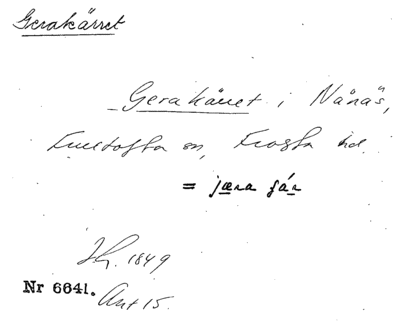 Gerakärret
Gerakärret i Nånäs,
Fulltofta sn, Frosta hd.
= jæra ʃár
Jh. 1849
Nr 6641. Ant 15.